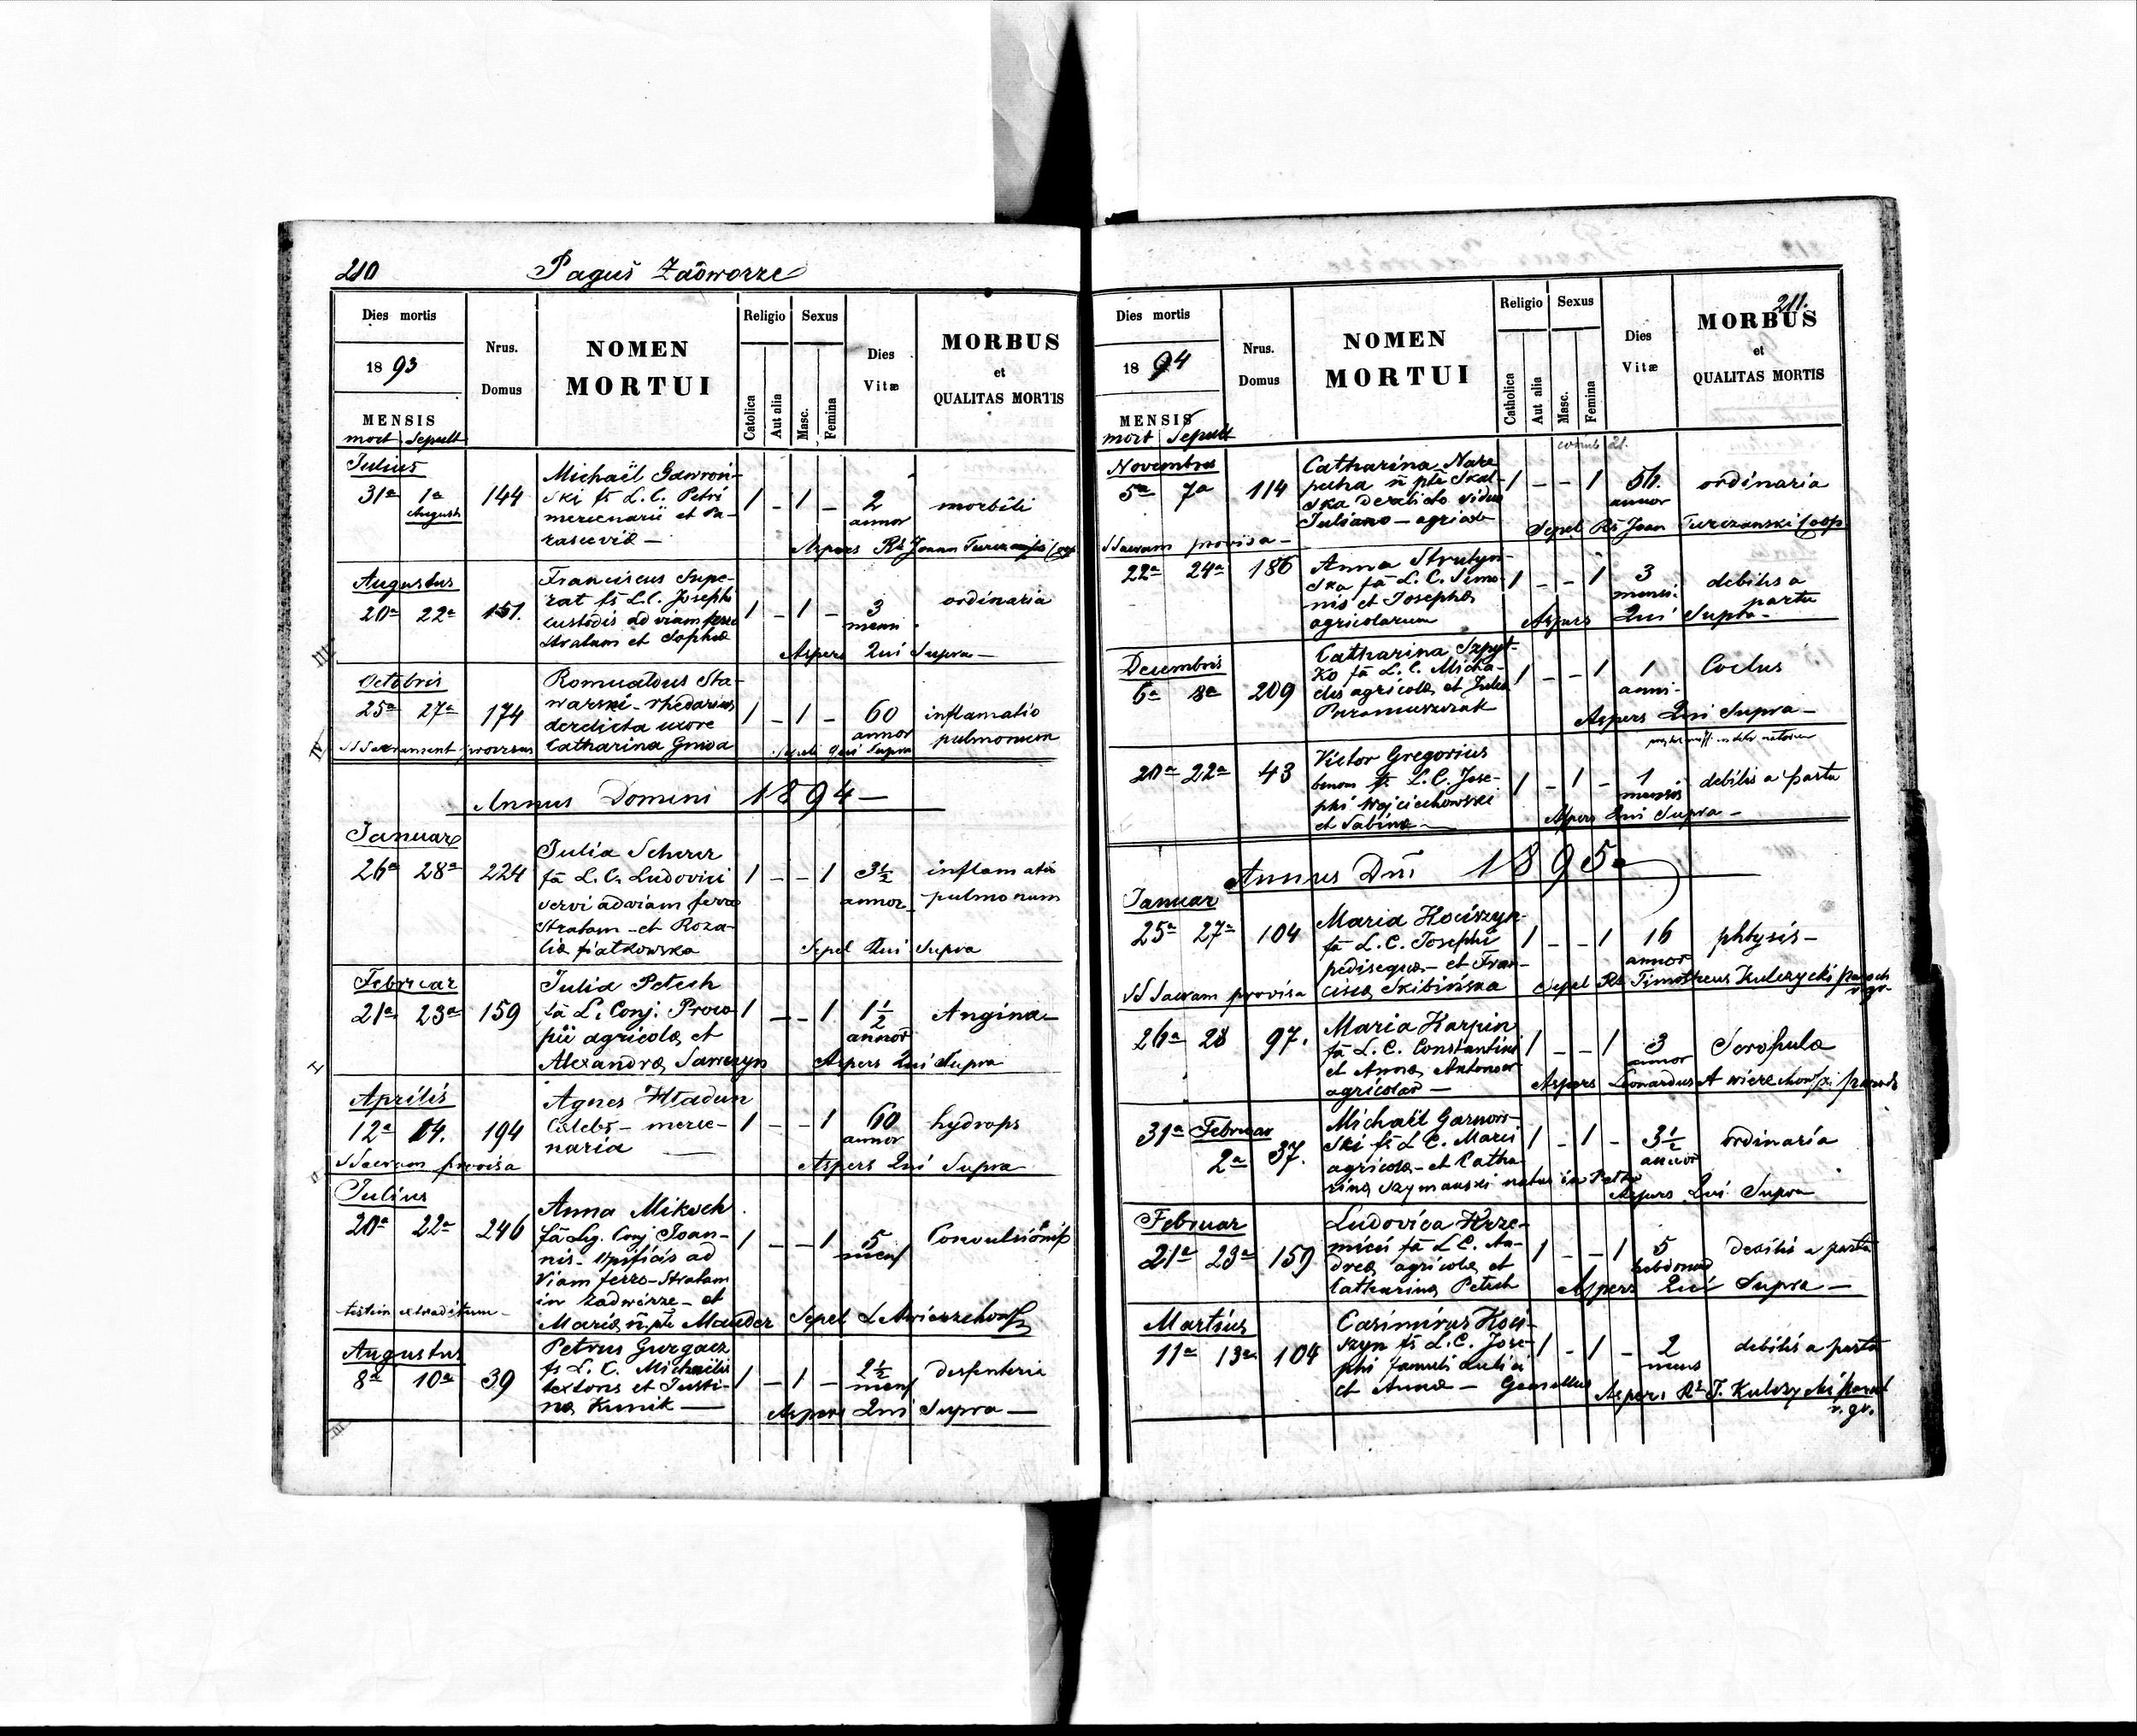 210 Paguš Zadworze
Dies mortis
1893
MENSIS
mort Sepult
Nrus.
Domus
NOMEN
MORTUI
Religio
Catolica
Aut alia
Sexus
Masc.
Femina
Dies
Vitæ
MORBUS
et
QUALITAS MORTIS
Julius
31a 1a 144 Michaël Gawroń-
Augusti
ski fs L. C. Petri
mercenarii et Pa-
rasceviæ —
1 - 1 - 2
annor
morbili
Aspers Rs Joann Turczański Coop
Augustus
20a 22a 151. Franciscus Supe-
rat fs L. C. Josephi
custodis ad viam ferro
stratam et Sophiæ
1 - 1 - 3
mens
ordinaria
Aspers Qui Supra —
Octobris
25a 27a 174 Romualdus Sta-
warski - rhedarius
derelicta uxore
Catharina Gnida
1 - 1 - 60
annor
inflamatio
pulmonum
SSacrament provisus Sepeli Qui Supra
Annus Domini 1894 —
Januar
26a 28a 224 Julia Scherer
fa L. C. Ludovici
servi ad viam ferro
stratam - et Roza-
liæ Fiatkowska
1 - - 1 3½
annor
inflamatio
pulmonum
Sepel Qui Supra
Februar
21a 23a 159 Julia Petech
fa L. Conj. Proco-
pii agricolæ et
Alexandræ Sawczyn
1 - - 1 1½
annor
Angina —
Aspers Qui Supra
Aprilis
12a 14. 194 Agnes Hladun
Celebs - merce-
naria —
1 - - 1 60
annor
hydrops
SSacram provisa Aspers Qui Supra
Julius
20a 22a 246 Anna Miksch
fa Lg. Conj Joan-
nis - opificis ad
Viam ferro-Stratam
in Zadwórze - et
Mariæ n. pte Mauder
1 - - 1 5
mens
Convulsionis
testim extraditum - Sepel L Awierzchowski
Augustus
8a 10a 39 Petrus Gurgacz
fs L. C. Michaëlis
textoris et Justi-
næ Kunik —
1 - 1 - 2½
mens
desenteria
Aspers Qui Supra —
211.
Dies mortis
1894
MENSIS
mort Sepult
Nrus.
Domus
NOMEN
MORTUI
Religio
Catholica
Aut alia
Sexus
Masc.
Femina
Dies
Vitæ
MORBUS
et
QUALITAS MORTIS
Novembris
5a 7a 114 Catharina Nare
pucha n pte Skal-
ska derelicto viduo
Juliano - agricol
1 - - 1 56.
annor
ordinaria
Sepel Rs Joan Turczanski Coop
SSacram provisa -
22a 24a 186 Anna Strutyn-
ska fa L. C. Simo-
nis et Josephæ
agricolarum
1 - - 1 3
mensi.
debilis a
partu
Aspers Qui Supra -
Decembris
6a 8a 209 Catharina Szpyt-
ko fa L. C. Micha-
elis agricolæ et Juliæ
1 - - 1 1
anni -
Coclus
Aspers Qui Supra —
20a 22a 43 Victor Gregorius
binom fs L. C. Jose-
phi Wojciechowski
et Sabinæ —
1 - 1 - 1
mensis
debilis a partu
Aspers Qui Supra —
Annus Dni 1895
Januar
25a 27a 104 Maria Kociszyn
fa L. C. Josephi
pedisequæ - et Fran-
ciscæ Skibińska
1 - - 1 16
annor
phtysis -
SSacram provisa Sepel Rs Timotheus Kulczycki paroch
r. gr.
26a 28 97. Maria Karpin
fa L. C. Constantini
et Annæ Antonow
agricolar —
1 - - 1 3
annor
Scrophula
Aspers Leonardus Awierzchowski paroch
31a Februar
2a 37. Michaël Garnow-
ski fs L C. Marci
agricolæ - et Catha-
rinæ Szymanski natus in Petko
1 - 1 - 3½
annor
ordinaria
Aspers Qui Supra
Februar
21a 23a 159 Ludovica Krze-
mícii fa L C. An-
dreæ agricolæ et
Catharinæ Petech
1 - - 1 5
hebdomad
debilis a partu
Aspers Qui Supra —
Martius
11a 13a 104 Casimirus Koci-
szyn fs L. C. Jose-
phi famuli aulici
et Annæ - Gemellus
1 - 1 - 2
mens
debilis a partu
Aspers Rs T. Kulczycki paroch
r. gr.